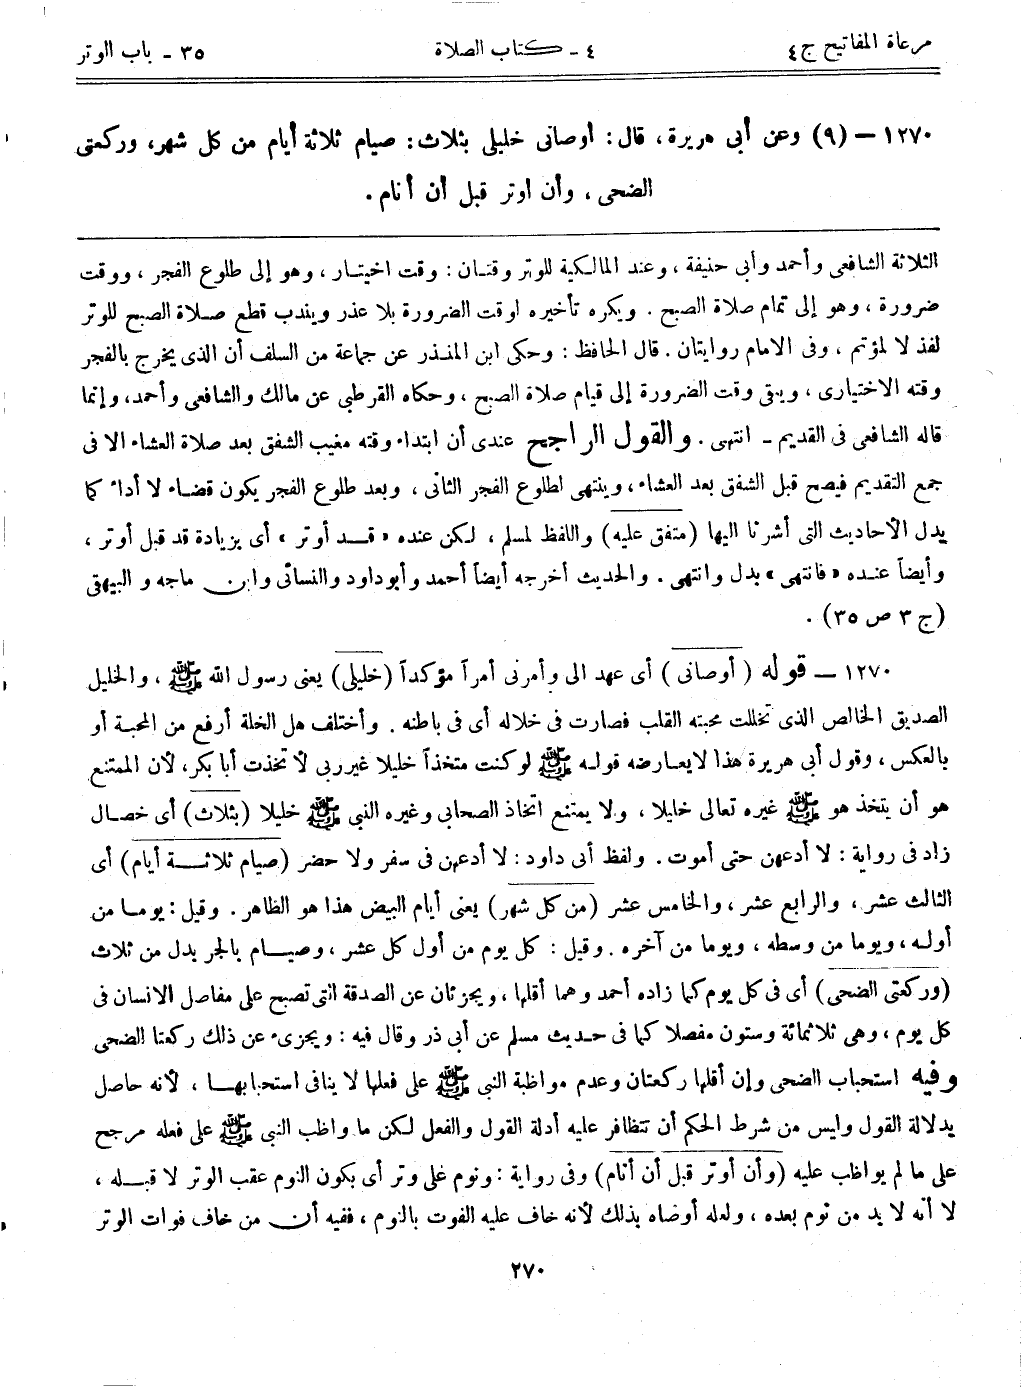 مرعاة المفاتيح ج٤ ٤ ـ كتاب الصلاة ٣٥ ـ باب الوتر
١٢٧٠ – (٩) وعن أبى هريرة، قال: أوصانى خليلى بثلاث: صيام ثلاثة أيام من كل شهر، وركعتى
الضحى، وأن أوتر قبل أن أنام.
الثلاثة الشافعى وأحمد وأبى حنيفة، وعند المالكية للوتر وقتان: وقت اختيار، وهو إلى طلوع الفجر، ووقت
ضرورة، وهو إلى تمام صلاة الصبح. ويكره تأخيره لوقت الضرورة بلا عذر ويندب قطع صلاة الصبح للوتر
لفذ لا لمؤتم، وفى الامام روايتان. قال الحافظ: وحكى ابن المنذر عن جماعة من السلف أن الذى يخرج بالفجر
وقته الاختيارى، ويبقى وقت الضرورة إلى قيام صلاة الصبح، وحكاه القرطبى عن مالك والشافعى وأحمد، وإنما
قاله الشافعى فى القديم ـ انتهى. والقول الراجح عندى أن ابتداء وقته مغيب الشفق بعد صلاة العشاء الا فى
جمع التقديم فيصح قبل الشفق بعد العشاء، وينتهى لطلوع الفجر الثانى، وبعد طلوع الفجر يكون قضاء لا أداء كما
يدل الأحاديث التى أشرنا اليها (متفق عليه) واللفظ لمسلم، لكن عنده «قد أوتر» أى بزيادة قد قبل أوتر،
وأيضاً عنده «فانتهى» بدل وانتهى. والحديث أخرجه أيضاً أحمد وأبوداود والنسائى وابن ماجه والبيهقى
(ج ٣ ص ٣٥).
١٢٧٠ – قوله (أوصانى) أى عهد الى وأمرنى أمراً مؤكداً (خليلى) يعنى رسول الله ﷺ، والخليل
الصديق الخالص الذى تخللت محبته القلب فصارت فى خلاله أى فى باطنه. وأختلف هل الخلة أرفع من المحبة أو
بالعكس، وقول أبى هريرة هذا لايعارضه قوله ﷺ لوكنت متخذاً خليلا غيرربى لاتخذت أبا بكر، لأن الممتنع
هو أن يتخذ هو ﷺ غيره تعالى خليلا، ولا يمتنع اتخاذ الصحابى وغيره النبى ﷺ خليلا (بثلاث) أى خصال
زاد فى رواية: لا أدعهن حتى أموت. ولفظ أبى داود: لا أدعهن فى سفر ولا حضر (صيام ثلاثة أيام) أى
الثالث عشر، والرابع عشر، والخامس عشر (من كل شهر) يعنى أيام البيض هذا هو الظاهر. وقيل: يوما من
أوله، ويوما من وسطه، ويوما من آخره. وقيل: كل يوم من أول كل عشر، وصيام بالجر بدل من ثلاث
(وركعتى الضحى) أى فى كل يوم كما زاده أحمد وهما أقلها، ويجزئان عن الصدقة التى تصبح على مفاصل الانسان فى
كل يوم، وهى ثلاثمائة وستون مفصلا كما فى حديث مسلم عن أبى ذر وقال فيه: ويجزىء عن ذلك ركعتا الضحى
وفيه استحباب الضحى وإن أقلها ركعتان وعدم مواظبة النبى ﷺ على فعلها لا ينافى استحبابها، لأنه حاصل
بدلالة القول وليس من شرط الحكم أن تتظافر عليه أدلة القول والفعل لكن ما واظب النبى ﷺ على فعله مرجح
على ما لم يواظب عليه (وأن أوتر قبل أن أنام) وفى رواية: ونوم على وتر أى يكون النوم عقب الوتر لا قبله،
لا أنه لا بد من نوم بعده، ولعله أوصاه بذلك لأنه خاف عليه الفوت بالنوم، ففيه أن من خاف فوات الوتر
٢٧٠